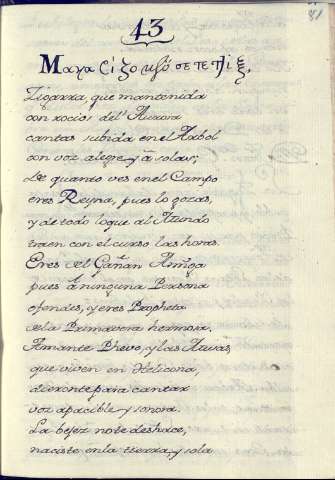 43
81
Μαχαζίζομϗσετεττιξ,
Zigarra, que mantenida
con rocios del' Aurora
cantas subida en el Arbol
con voz alegre, y à solas;
De quanto ves en el Campo
eres Reyna, pues lo gozas,
y de todo lo que al Mundo
traen con el curso las horas.
Eres del Gañan Amiga
pues à ninguna Persona
ofendes, y eres Propheta
de la Primavera hermosa.
Amante Phevo, y las Musas
que viven en Helicona,
dieronte para cantar
voz apacible y sonora.
La bejez no te deshace,
naciste en la tierra, y sola